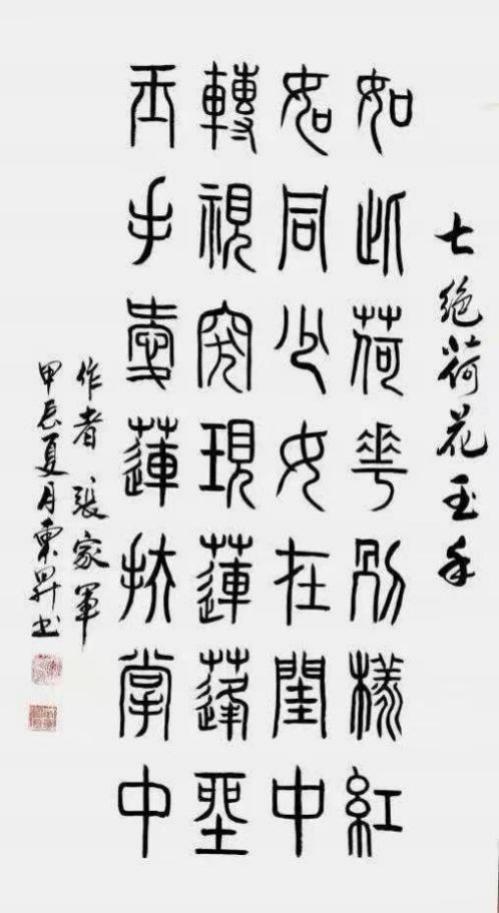 七絕荷花玉手
如此荷華別樣紅
如同少女在閨中
轉視突現蓮蓬坐
玉手愛蓮扶掌中
作者張家軍
甲辰夏月東昇书